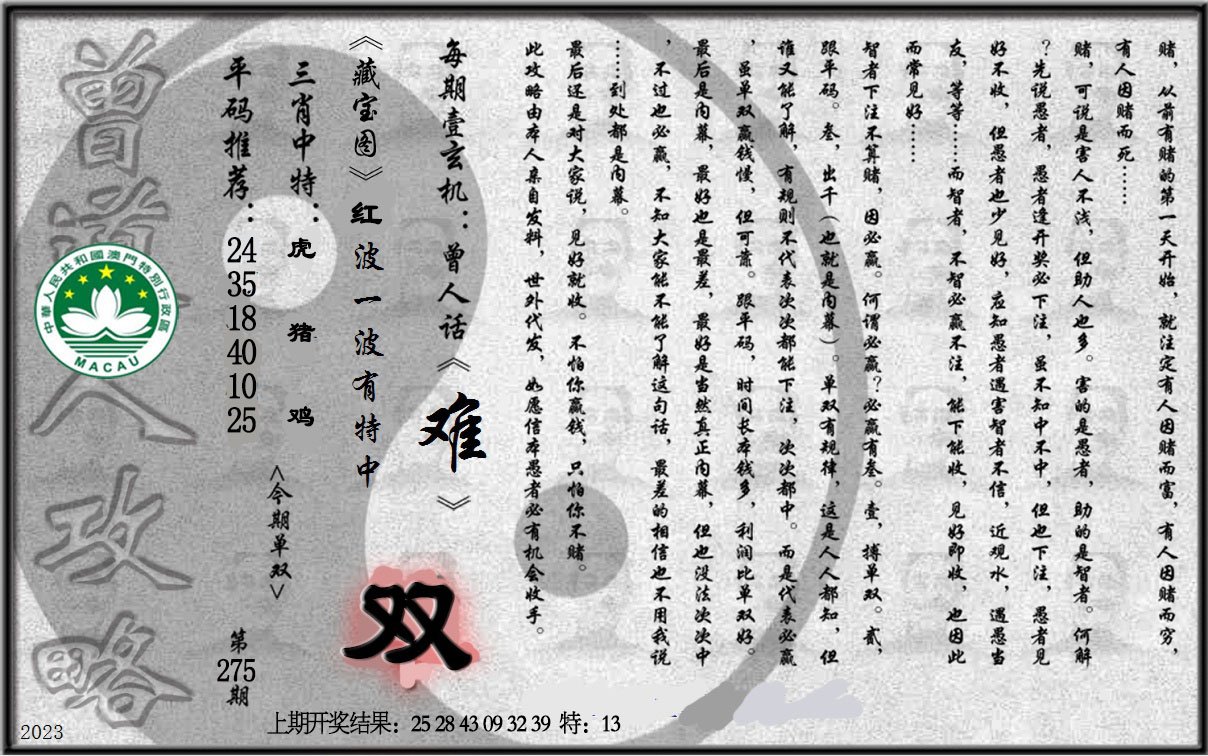 赌，从前有赌的第一天开始，就注定有人因赌而富，有人因赌而穷，
有人因赌而死……
赌，可说是害人不浅，但助人也多。害的是愚者，助的是智者。何解
？先说愚者，愚者逢开奖必下注，虽不知中不中，但也下注，愚者见
好不收，但愚者也少见好，应知愚者遇害智者不信，近观水，遇愚当
友，等等……而智者，不智必赢不注，能下能收，见好即收，也因此
而常见好……
智者下注不算赌，因必赢。何谓必赢？必赢有叁。壹，搏单双。贰，
跟平码。叁，出千（也就是内幕）。单双有规律，这是人人都知，但
谁又能了解，有规则不代表次次都能下注，次次都中。而是代表必赢
，虽单双赢钱慢，但可靠。跟平码，时间长本钱多，利润比单双好。
最后是内幕，最好也是最差，最好是当然真正内幕，但也没法次次中
，不过也必赢，不知大家能不能了解这句话，最差的相信也不用我说
……到处都是内幕。
最后还是对大家说，见好就收。不怕你赢钱，只怕你不赌。
此攻略由本人亲自发料，世外代发，如愿信本愚者必有机会收手。
每期壹玄机：曾人话《难》
《藏宝图》红波一波有特中
双
三肖中特：虎 猪 鸡
<今期单双>
平码推荐：24 35 18 40 10 25
第275期
曾道人攻略
中華人民共和國澳門特別行政區
MACAU
上期开奖结果：25 28 43 09 32 39 特：13
2023